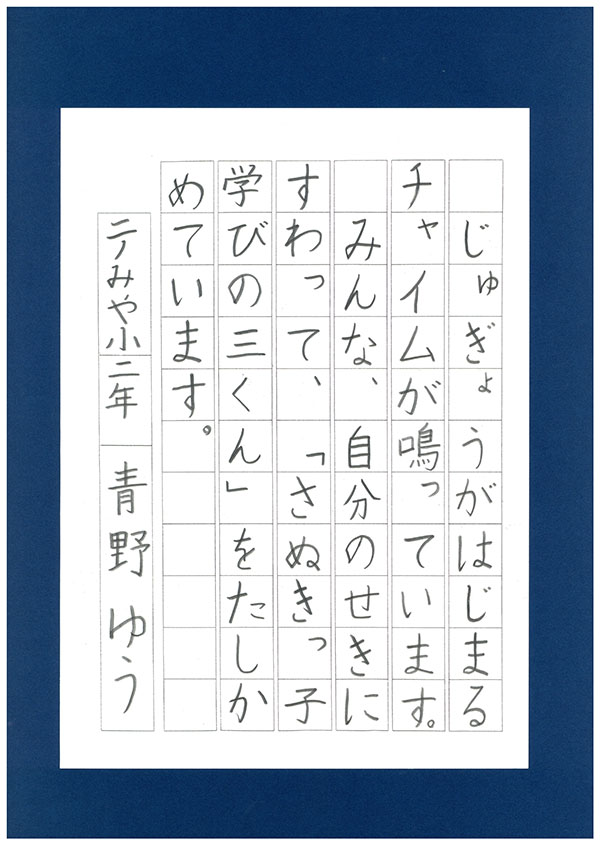 じゅぎょうがはじまる
チャイムが鳴っています。
みんな、自分のせきに
すわって、「さぬきっ子
学びの三くん」をたしか
めています。
テみや小二年 青野ゆう